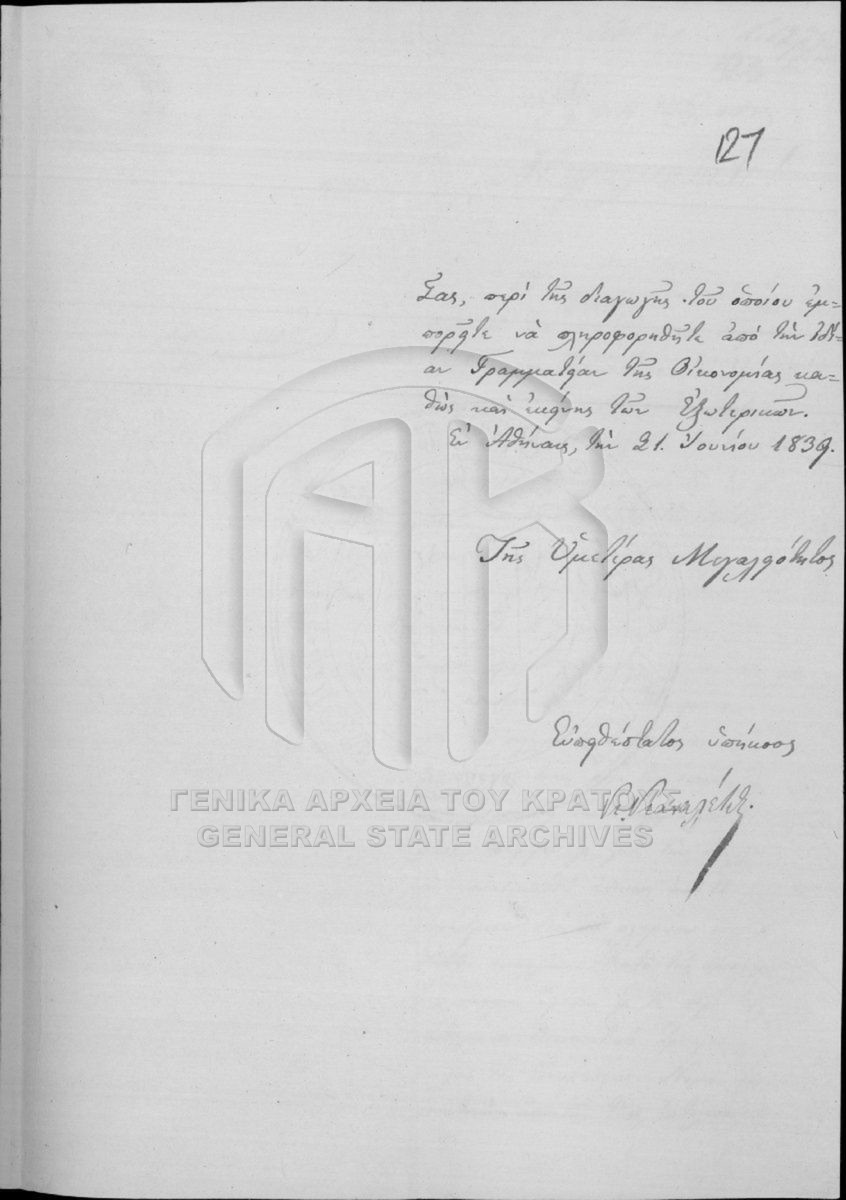 127
Σας, περὶ τῆς διαγωγῆς τοῦ ὁποίου ἐμ-
πορεῖτε νὰ πληροφορηθῆτε ἀπὸ τὴν ἰδί-
αν Γραμματείαν τῆς Οἰκονομίας κα-
θὼς καὶ ἐκείνης τῶν Ἐξωτερικῶν.
Ἐν Ἀθήναις, τὴν 21. Ἰουνίου 1839.
Τῆς Ὑμετέρας Μεγαλειότητος
Εὐπειθέστατος ὑπήκοος
ΓΕΝΙΚΑ ΑΡΧΕΙΑ ΤΟΥ ΚΡΑΤΟΥΣ
GENERAL STATE ARCHIVES